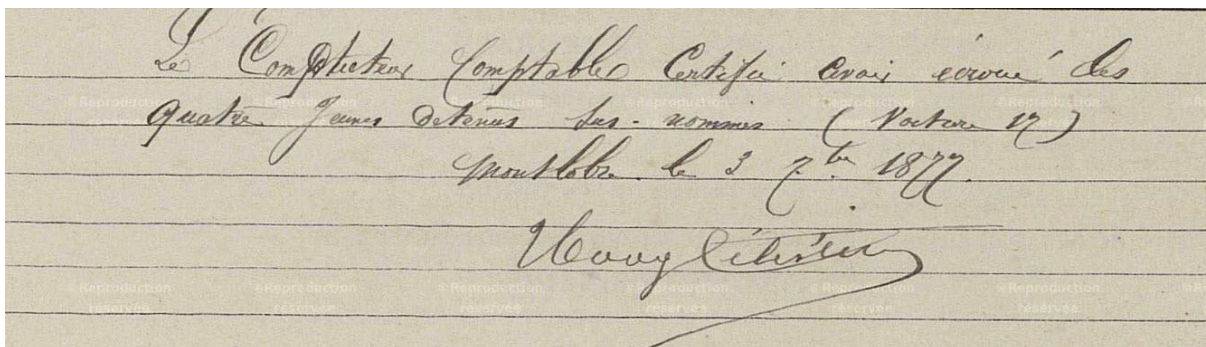 Le Conducteur Comptable Certifie avoir écroué les
quatre Jeunes détenus sus-nommés (Voiture 17)
le 3 7bre 1877.
©Reproduction réservée